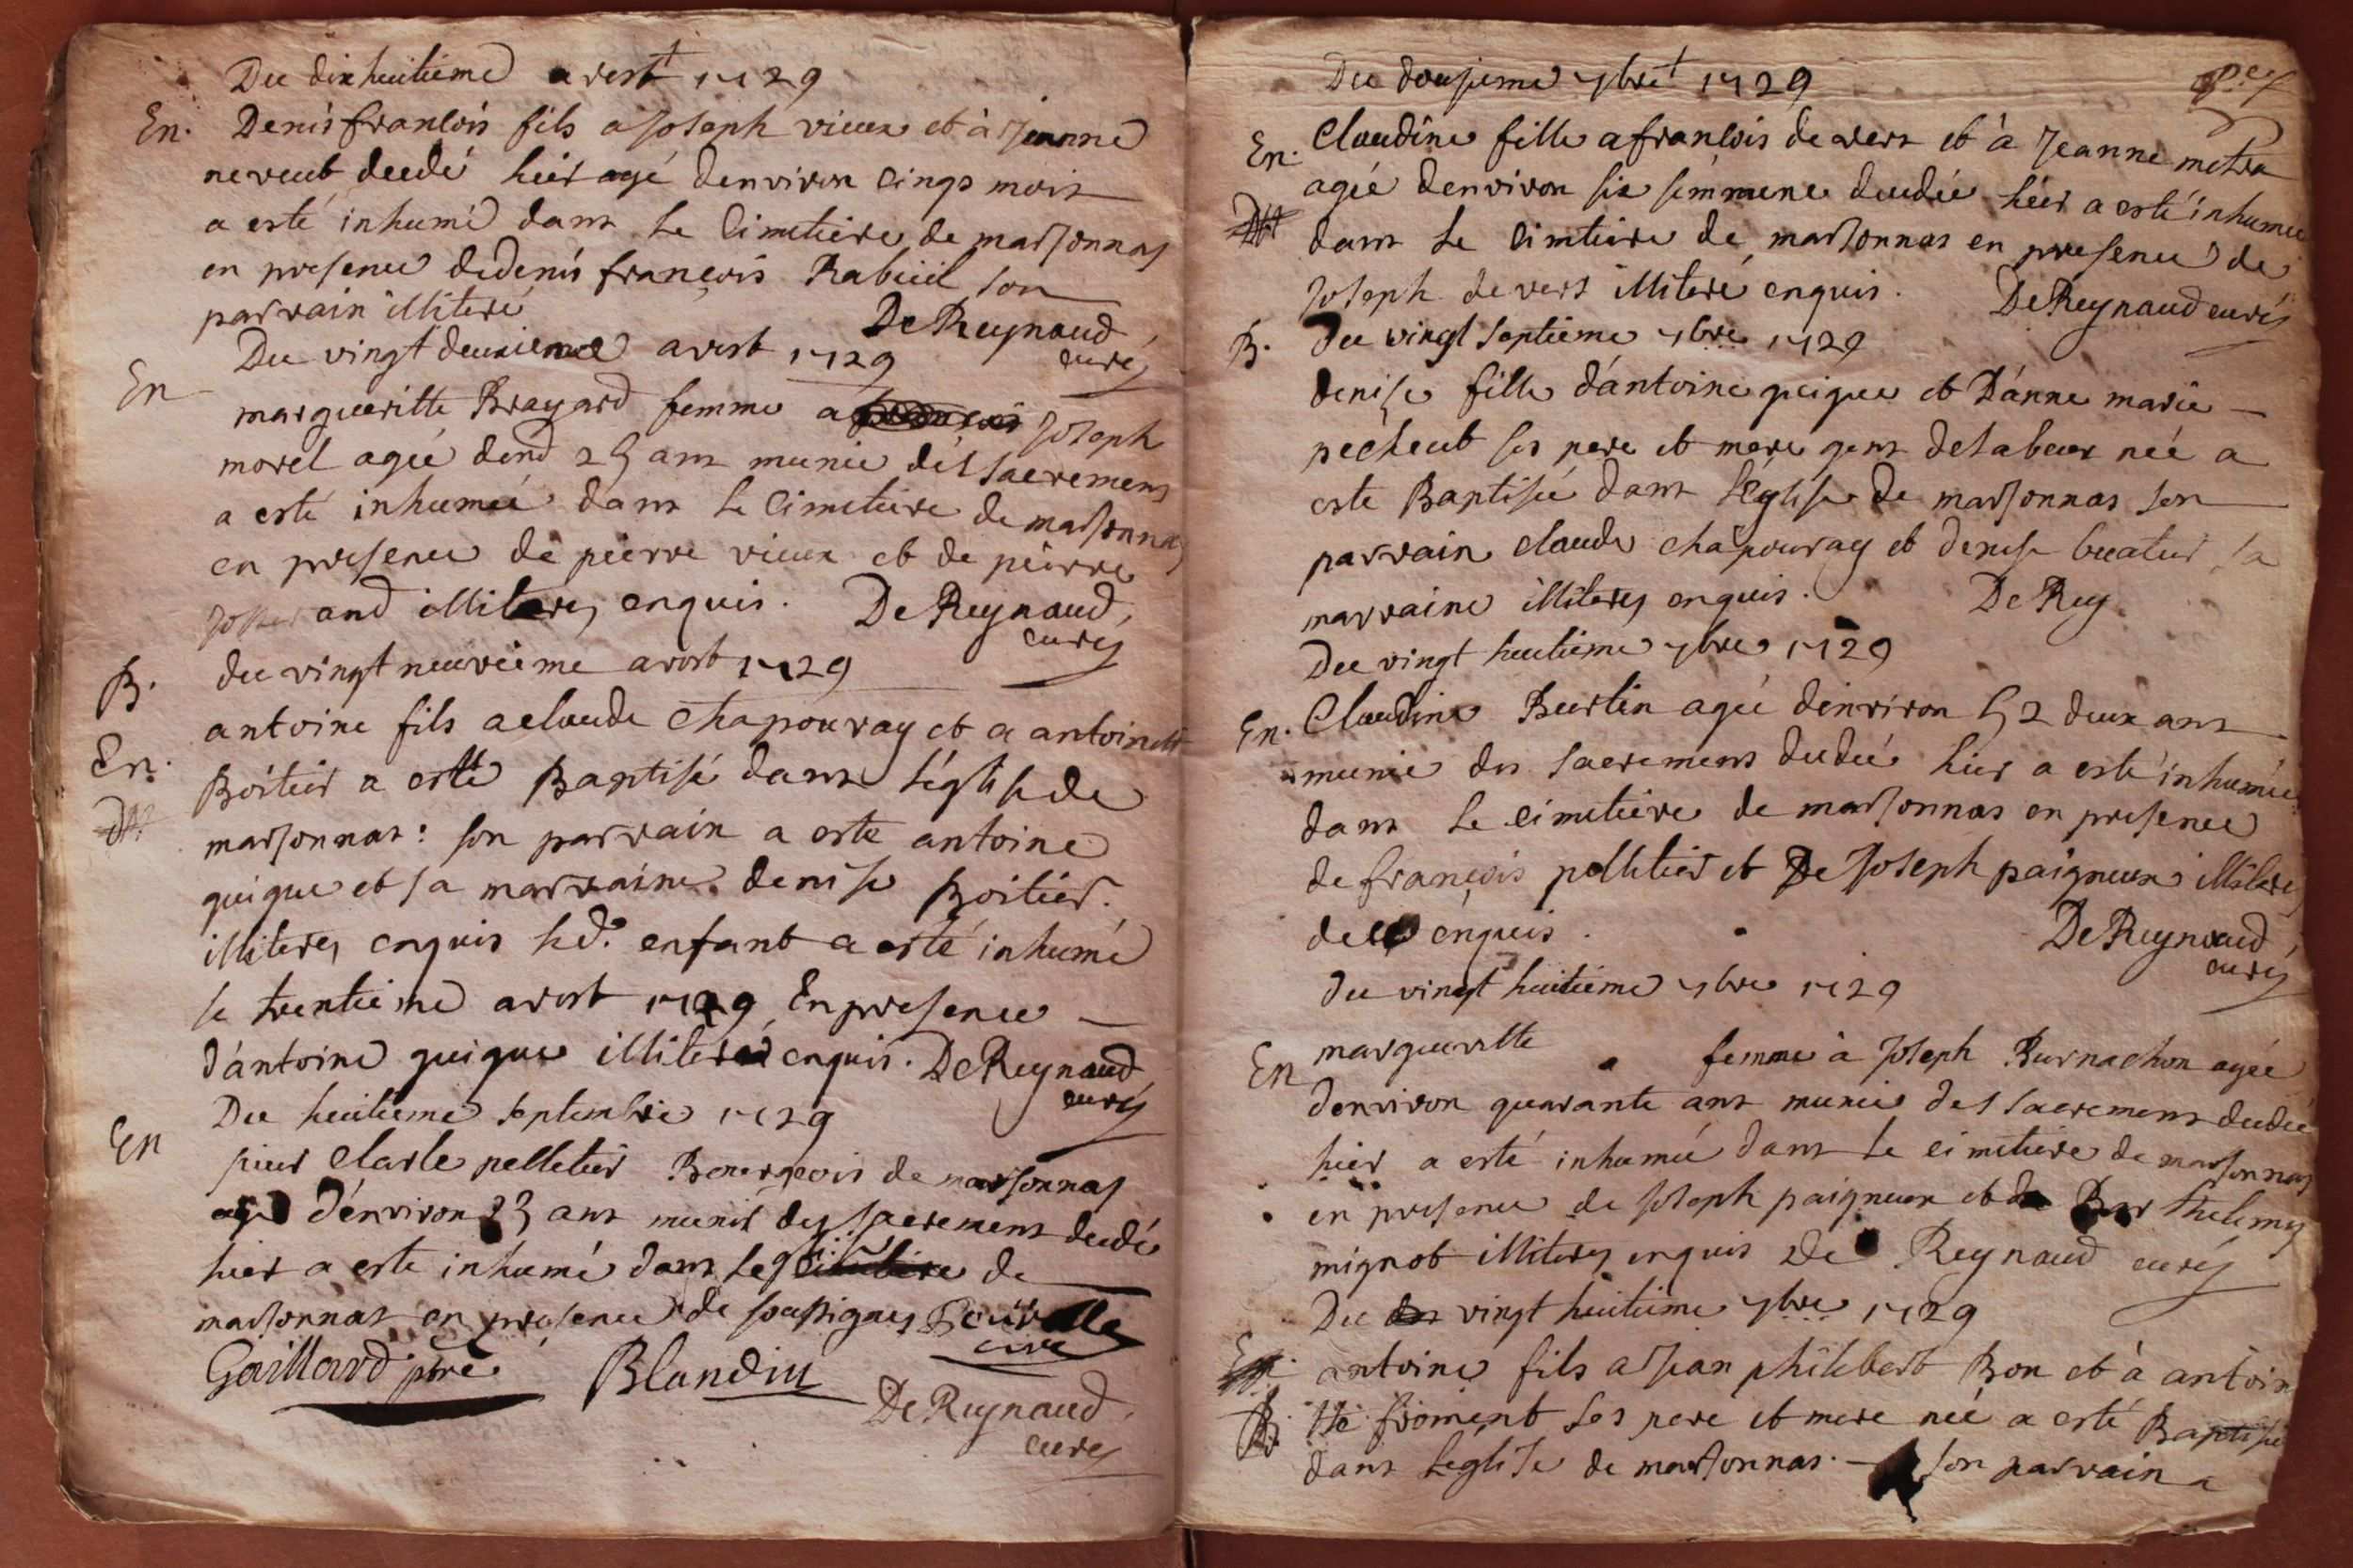 Du dixhuitieme aoust 1729
En. Denis francois fils a Joseph vieux et à Jeanne
neveut decdé hier agé denviron cinqs mois
a esté inhumé dans le cimetiere de marsonnas
en presence de denis françois Rabuel son
parrain illiteré De Reynaud
curé
Du vingt deuxieme aoust 1729
En margueritte Brayard femme a Joseph
morel agée dend 25 ans munie des sacremens
a esté inhumée dans le cimetiere de marsonnas
en presence de pierre vieux et de pierre
and illiterés enquis. De Reynaud,
curé
B. du vingt neuvieme aoust 1729
antoine fils a claude chapouray et a antoinette
En. Boitier a esté Baptisé dans leglise de
marsonnas : son parrain a este antoine
guigue et sa marraine denise Boitier.
illiterés enquis led. enfant a esté inhumé
le trentieme aoust 1729 En presence
d'antoine guigue illiteré enquis. De Reynaud
curé
Du huitieme septembre 1729
En sieur Charle pelletier Bourgeois de marsonnas
agé d'environ ans munis des sacremens decdé
hier a este inhumé dans leglise de
marsonnas en presence de soussignés
curé
Gaillard ptre Blandin
De Reynaud,
curé
Du dousieme 7bre 1729
En. Claudine fille a francois devers et à Jeanne metra
agée denviron six semmene decdée hier a esté inhumée
dans le cimtiere de marsonnas en presence de
Joseph devers illiteré enquis. De Reynaud curé
B. Du vingt septieme 7bre 1729
denise fille d'antoine guigue et D'anne marie
pecheut ses pere et mere gens delabeur née a
este Baptisée dans l'Eglise de marsonnas son
parrain claude chapouray et denise buatier sa
marraine illiterés enquis. De Rey
Du vingt huitieme 7bre 1729
En. Claudine Burtin agée denviron 52 deux ans
munie des sacremens decdée hier a esté inhumée
dans le cimetiere de marsonnas en presence
de françois pelletier et De Joseph paigneux illiterés
de enquis. De Reynaud,
curé
Du vingt huitieme 7bre 1729
En margueritte femme à Joseph Burnachon agée
denviron quarante ans munie des sacremens decdée
hier a esté inhumée dans le cimetiere de marsonnas
en presence de Joseph paigneux et de Barthelemy
mignot illiterés enquis De Reynaud curé
Du vingt huitieme 7bre 1729
antoine fils a Jean philibert Bon et à antoin
B. tte froment ses pere et mere née a esté Baptisé
dans leglise de marsonnas. son parrain a